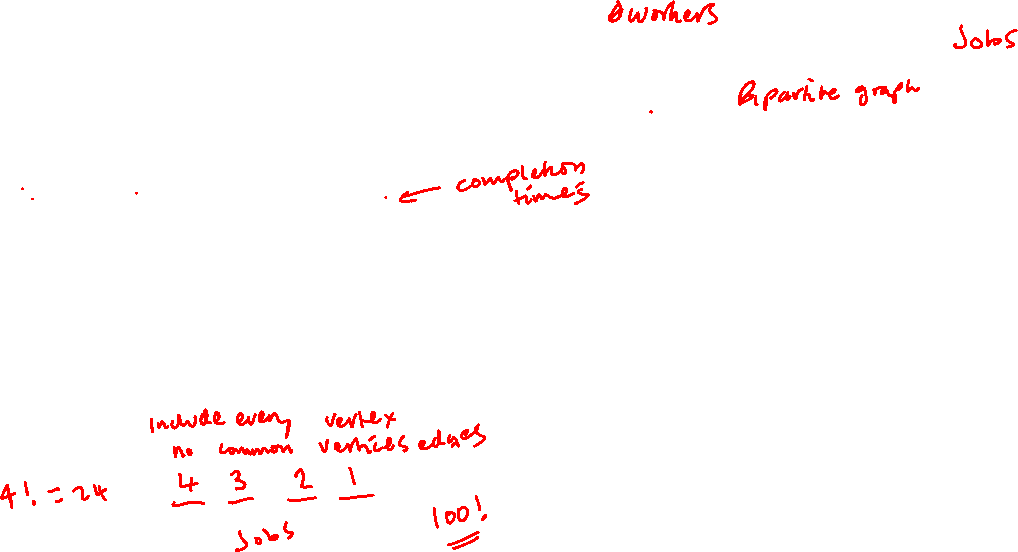 workers
Jobs
Bipartite graph
← completion
times
include every vertex
no common vertices edges
4! = 24 4 3 2 1
Jobs
100!